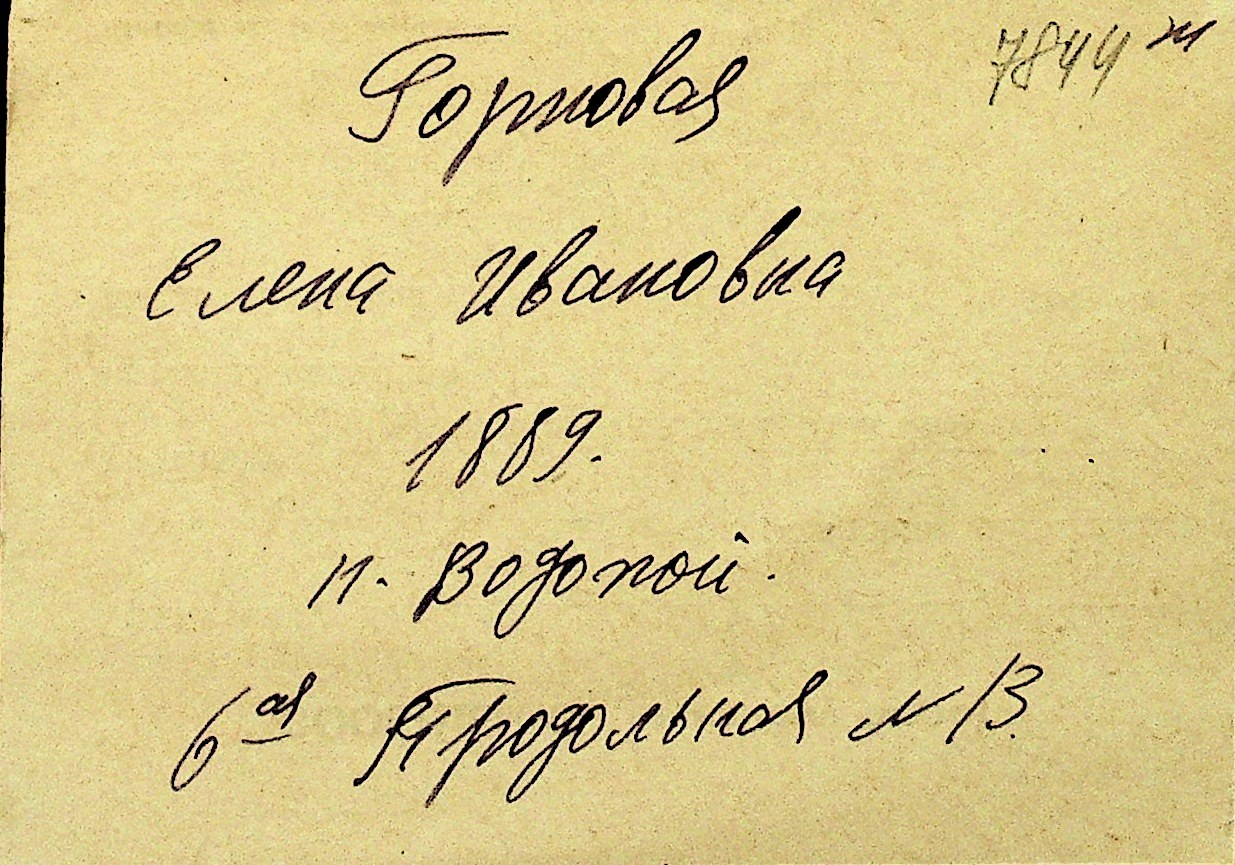 7844 ж
Горповая
Елена Ивановна
1889.
п. Водопой.
6ая Продольная № 13.